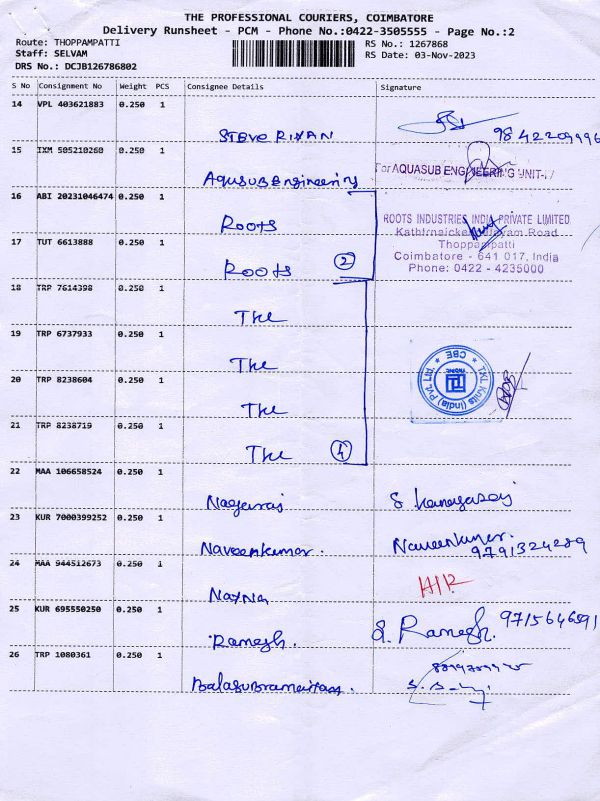 THE PROFESSIONAL COURIERS, COIMBATORE
Delivery Runsheet - PCM - Phone No.:0422-3505555 - Page No.:2
Route: THOPPAMPATTI RS No.: 1267868
Staff: SELVAM RS Date: 03-Nov-2023
DRS No.: DCJB126786802
S No Consignment No Weight PCS Consignee Details Signature
14 VPL 403621883 0.250 1
STEVE RIXAN 9842209996
15 TXM 505210260 0.250 1
Aquasub Engineering For AQUASUB ENGINEERING UNIT-IV
16 ABI 20231046474 0.250 1
Roots ROOTS INDUSTRIES INDIA PRIVATE LIMITED
Road
17 TUT 6613888 0.250 1 Thoppampatti
Roots 2 Coimbatore - 641 017, India
Phone: 0422 - 4235000
18 TRP 7614398 0.250 1
The
19 TRP 6737933 0.250 1
The
20 TRP 8238604 0.250 1 TKL Knits (India) Pvt. Ltd. CBE
The
21 TRP 8238719 0.250 1
The 4
22 MAA 106658524 0.250 1
Nagaraj
23 KUR 7000399252 0.250 1
Naveenkumar. Naveenkumar.
9791324289
24 MAA 944512673 0.250 1
Nayna
25 KUR 695550250 0.250 1
Ramesh. S. Ramesh. 9715646591
26 TRP 1080361 0.250 1